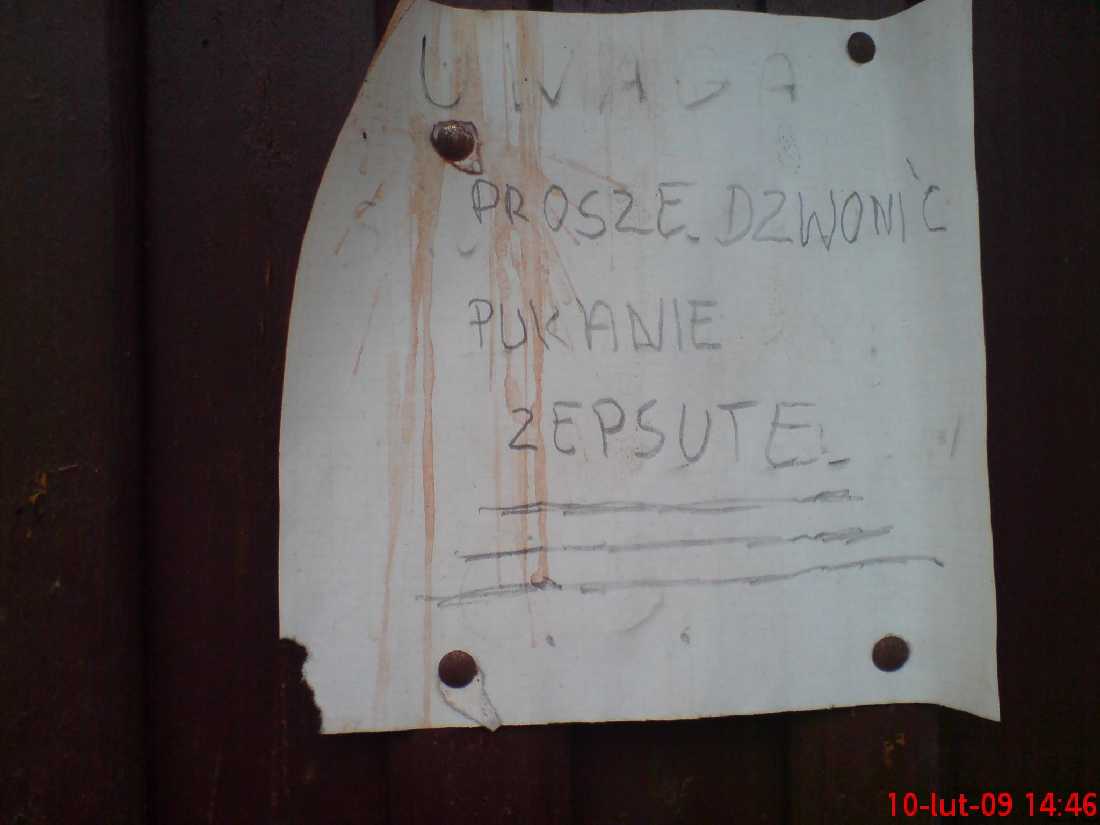 UWAGA
PROSZE DZWONIĆ
PUKANIE
ZEPSUTE
10-lut-09 14:46